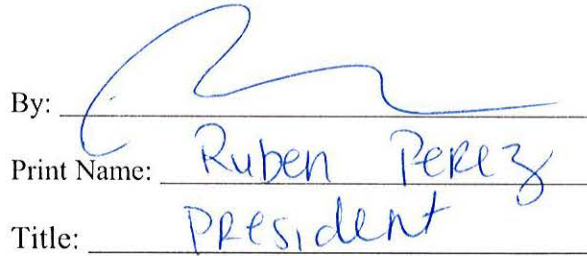 By:
Print Name: Ruben Perez
Title: President